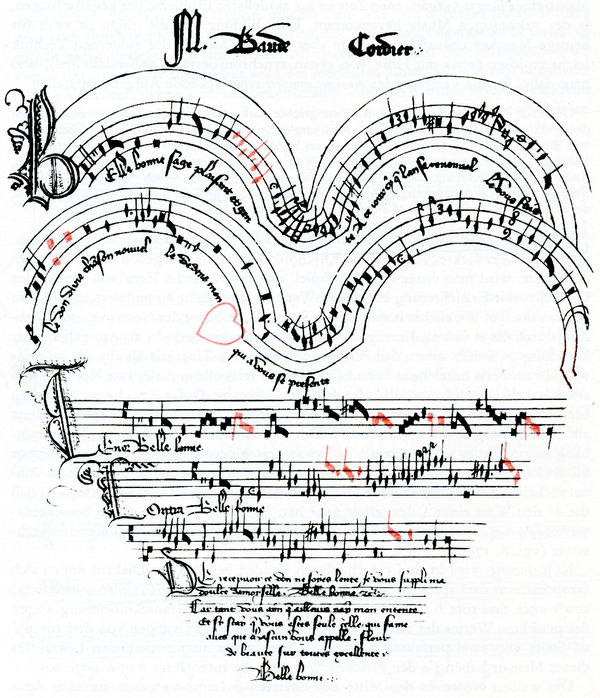 M. Baude Cordier:.
Belle bonne sage plaisant et gen
te A ce jour cy q lan se renouvel
le Vous fais
le don dune chanson nouvel
le Dedens mon
qui a vous se presente
Tenor Belle bonne
Contra Belle bonne
De recepvoir ce don ne soyes lente, je vous suppli ma
doulce damoyselle. Belle bonne. zc:.
Car tant vous aim qaillours nay mon entente
et si scay q vous estes seule celle qui fame
aves que chascun vous appelle. flour
de biaute sur toutes excellente.
Belle bonne.:.